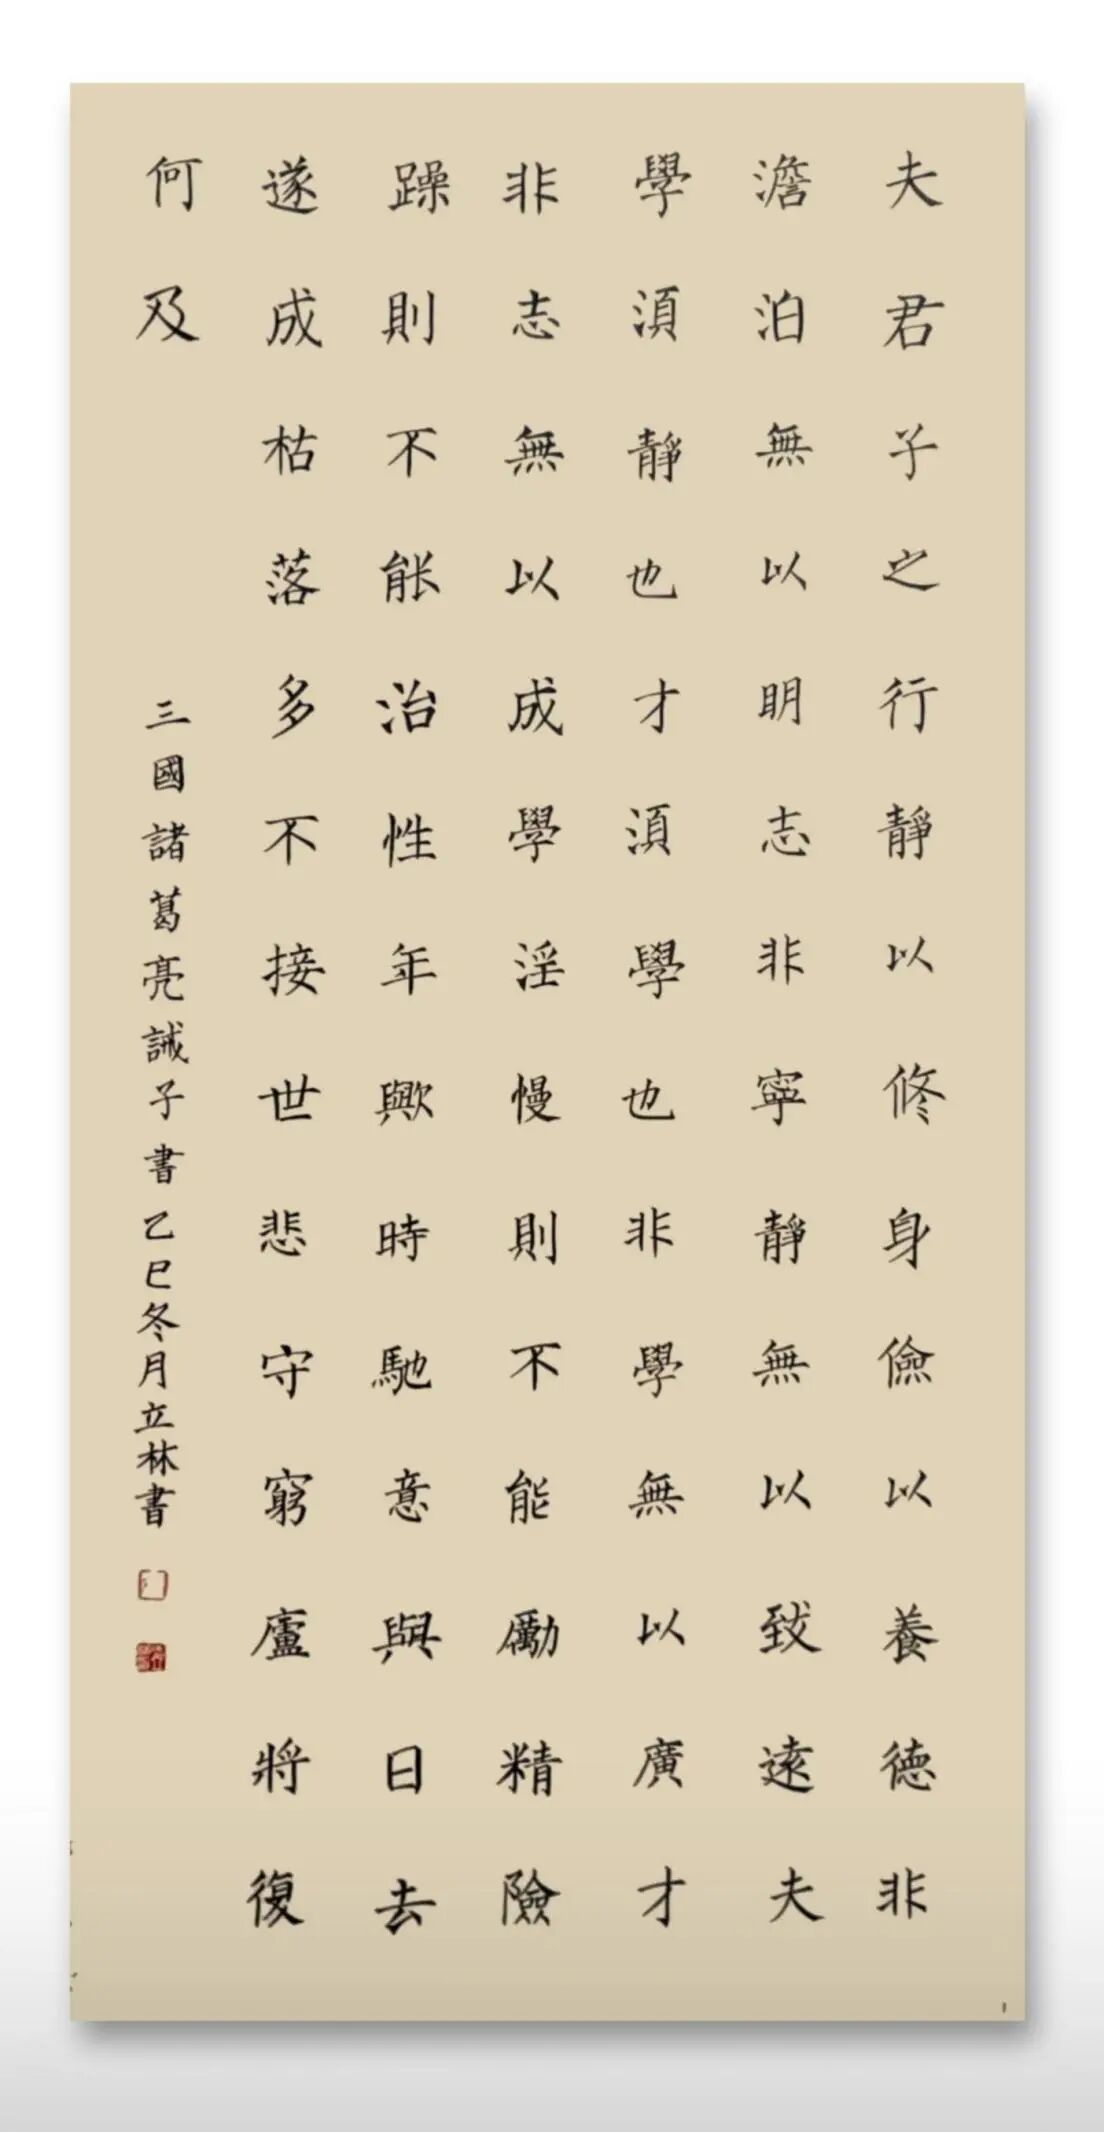 夫君子之行靜以修身儉以養德非
澹泊無以明志非寧靜無以致遠夫
學須靜也才須學也非學無以廣才
非志無以成學淫慢則不能勵精險
躁則不能治性年歟時馳意與日去
遂成枯落多不接世悲守窮廬將復
何及
三國諸葛亮誡子書乙巳冬月立林書